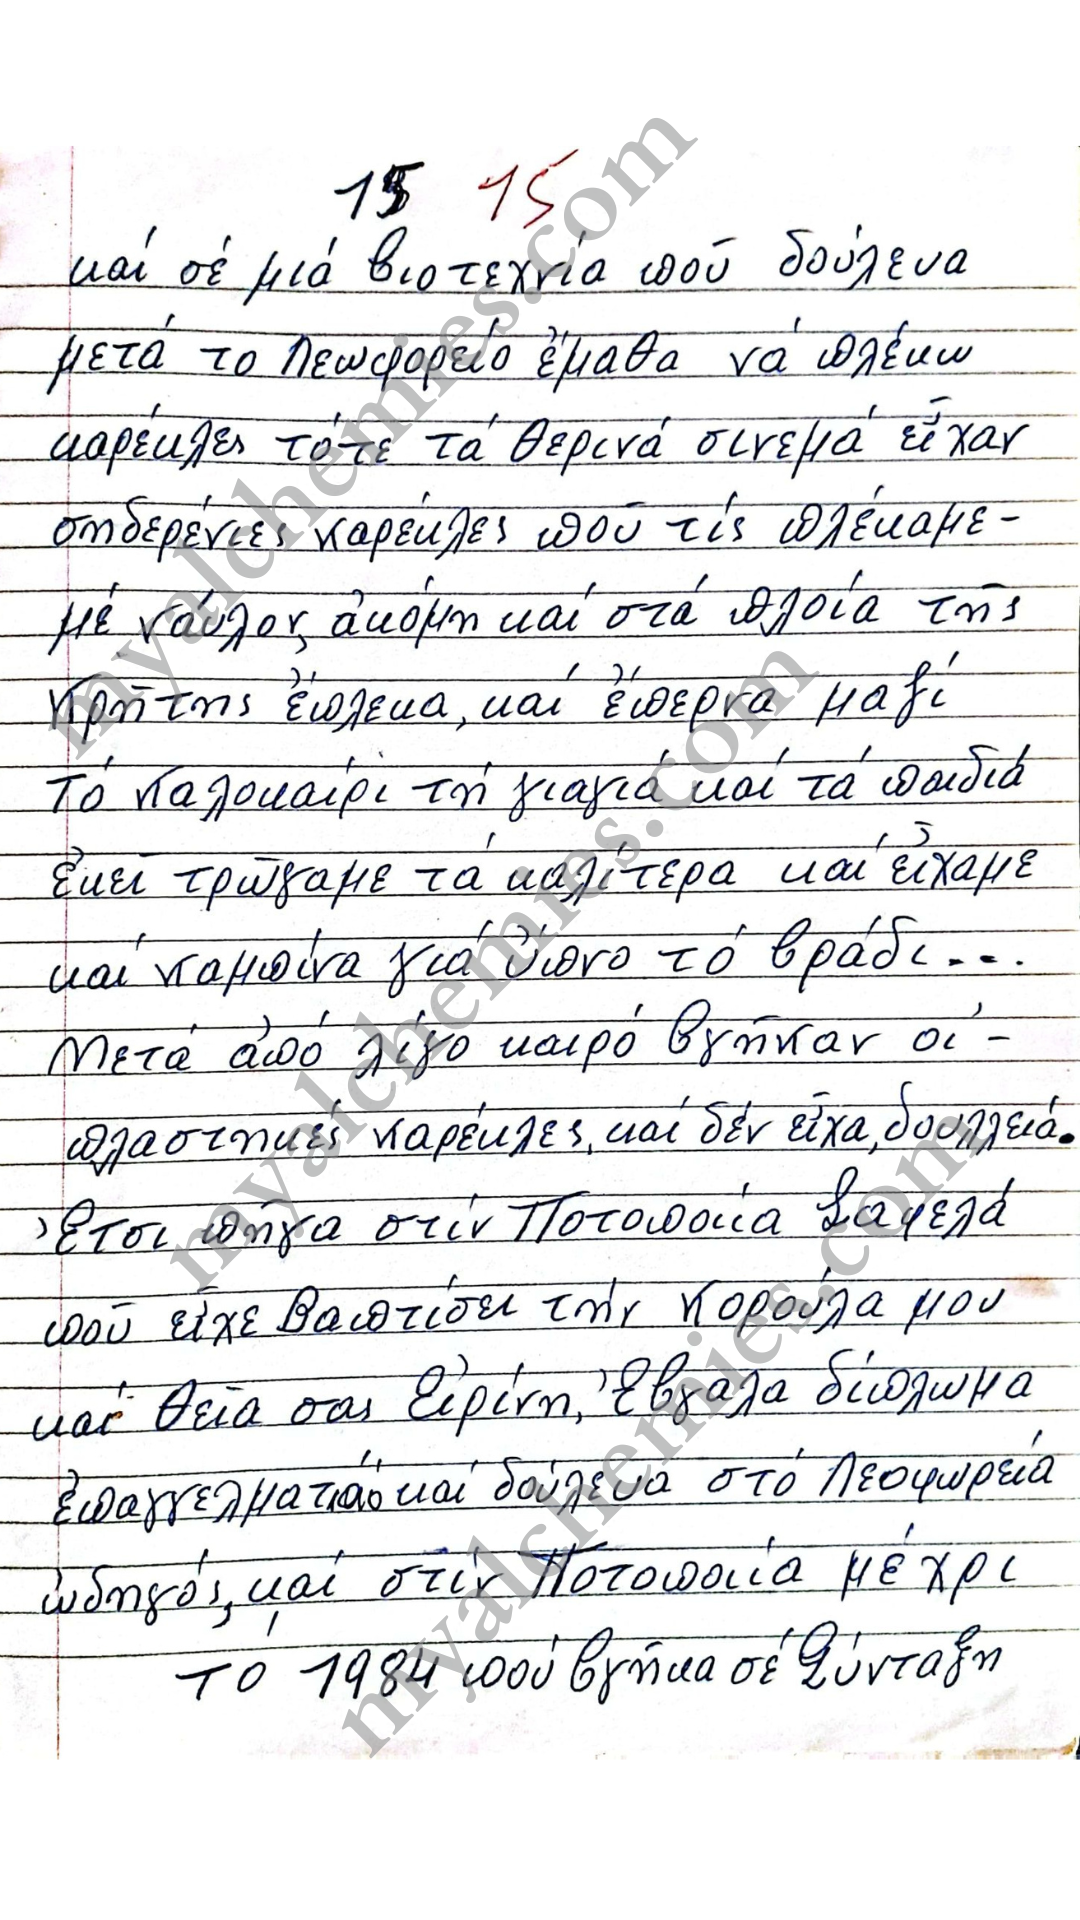 15 15
καί σέ μιά βιοτεχνία πού δούλευα
μετά το Λεωφορείο ἔμαθα νά πλέκω
καρέκλες τότε τά θερινά σινεμά εἶχαν
σηδερένιες καρέκλες πού τίς πλέκαμε-
μέ νάυλον, ἀκόμη καί στά πλοία τῆς
Κρήτης ἔπλεκα, καί ἔπερνα μαζί
τό καλοκαίρι τή γιαγιά καί τά παιδιά
ἐκεῖ τρώγαμε τά καλίτερα καί εἶχαμε
καί καμπίνα γιά ὕπνο τό βράδι...
Μετά ἀπό λίγο καιρό βγῆκαν οἱ-
πλαστηκές καρέκλες, και δέν εἶχα, δουλλειά.
Ἔτσι πῆγα στίν Ποτοποιία Σαφελά
πού εἶχε βαπτίσει τήν κορούλα μου
καί θεῖα σας Εἰρίνη, Ἔβγαλα δίπλωμα
ἐπαγγελματικό καί δούλευα στό Λεοφωρεία
ὡδηγός, καί στίν Ποτοποιία μέχρι
τό 1984 πού βγῆκα σέ Σύνταξη
myalchemies.com
myalchemies.com
myalchemies.com